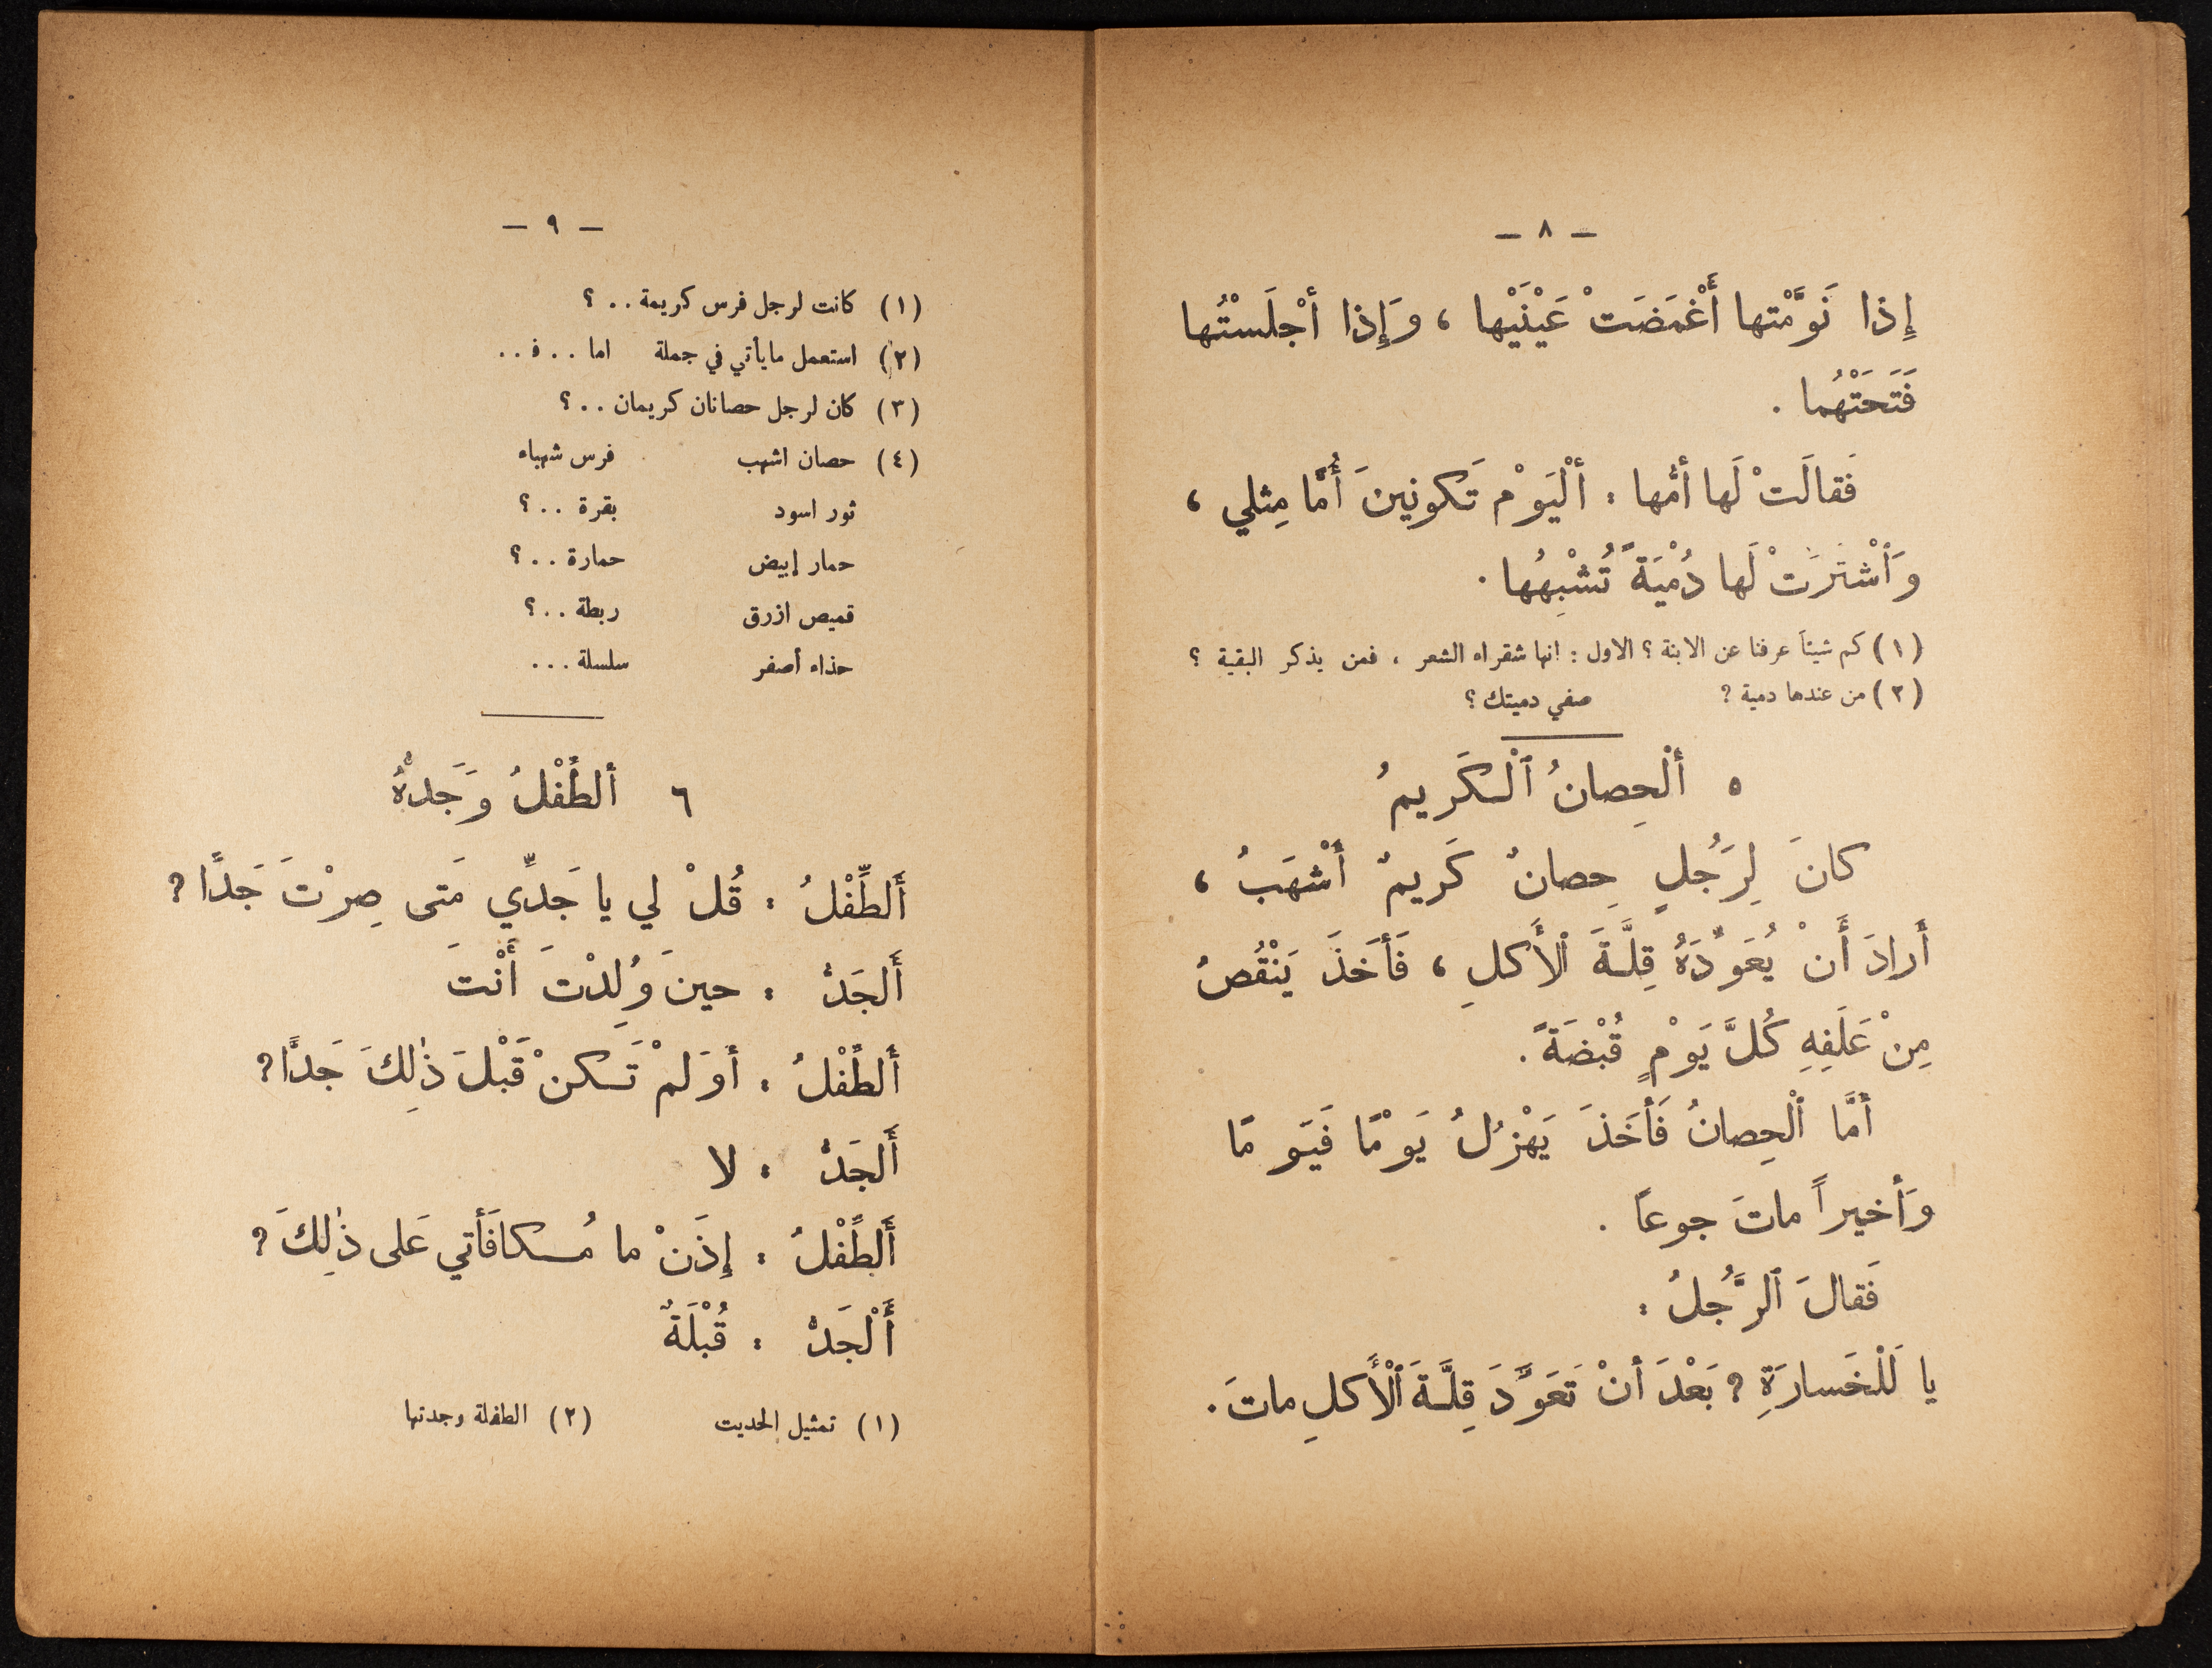 — ٨ —
إِذا نَوَّمْتها أَغْمَضَتْ عَيْنَيْها ، وَإِذا أجْلَسْتُها
فَتَحَتْهُما .
فَقالَتْ لَها أمُّها : ألْيَوْم تَكونِينَ أُمًّا مِثلي ،
وَٱشْتَرَتْ لَها دُمْيَةً تُشْبِهُها .
(١) كم شيئاً عرفنا عن الابنة ؟ الاول : انها شقراء الشعر ، فمن يذكر البقية ؟
(٢) من عندها دمية ? صفي دميتك ؟
٥ ألْحِصانُ ٱلْكَريمُ
كانَ لِرَجُلٍ حِصانٌ كَريمٌ أَشْهَبُ ،
أَرادَ أَنْ يُعَوِّدَهُ قِلَّةَ ٱلأَكلِ ، فَأخَذَ يَنْقُصُ
مِنْ عَلَفِهِ كُلَّ يَوْمٍ قُبْضَةً .
أمَّا ٱلْحِصانُ فَأخَذَ يَهْزُلُ يَوْمًا فَيَومًا
وَأخيراً ماتَ جوعًا .
فَقالَ ٱلرَّجُلُ :
يا لَلْخَسارَةِ ? بَعْدَ أنْ تَعَوَّدَ قِلَّةَ ٱلْأَكلِ ماتَ .
— ٩ —
(١) كانت لرجل فرس كريمة . . ؟
(٢) استعمل ما يأتي في جملة اما . . ف . .
(٣) كان لرجل حصانان كريمان . . ؟
(٤) حصان اشهب فرس شهباء
ثور اسود بقرة . . ؟
حمار إبيض حمارة . . ؟
قميص ازرق ربطة . . ؟
حذاء أصفر سلسلة . . .
٦ ألطِّفْلُ وَجَدُّهُ
أَلطِّفْلُ : قُلْ لي يا جَدِّي مَتى صِرْتَ جَدًّا ?
أَلجَدُّ : حينَ وُلِدْتَ أَنْتَ
أَلطِّفْلُ : أوَلَمْ تَكنْ قَبْلَ ذٰلِكَ جَدًّا ?
أَلجَدُّ : لا
أَلطِّفْلُ : إِذَنْ ما مُكافَأتي عَلى ذٰلِكَ ?
أَلْجَدُّ : قُبْلَةٌ
(١) تمثيل الحديث (٢) الطفلة وجدتها